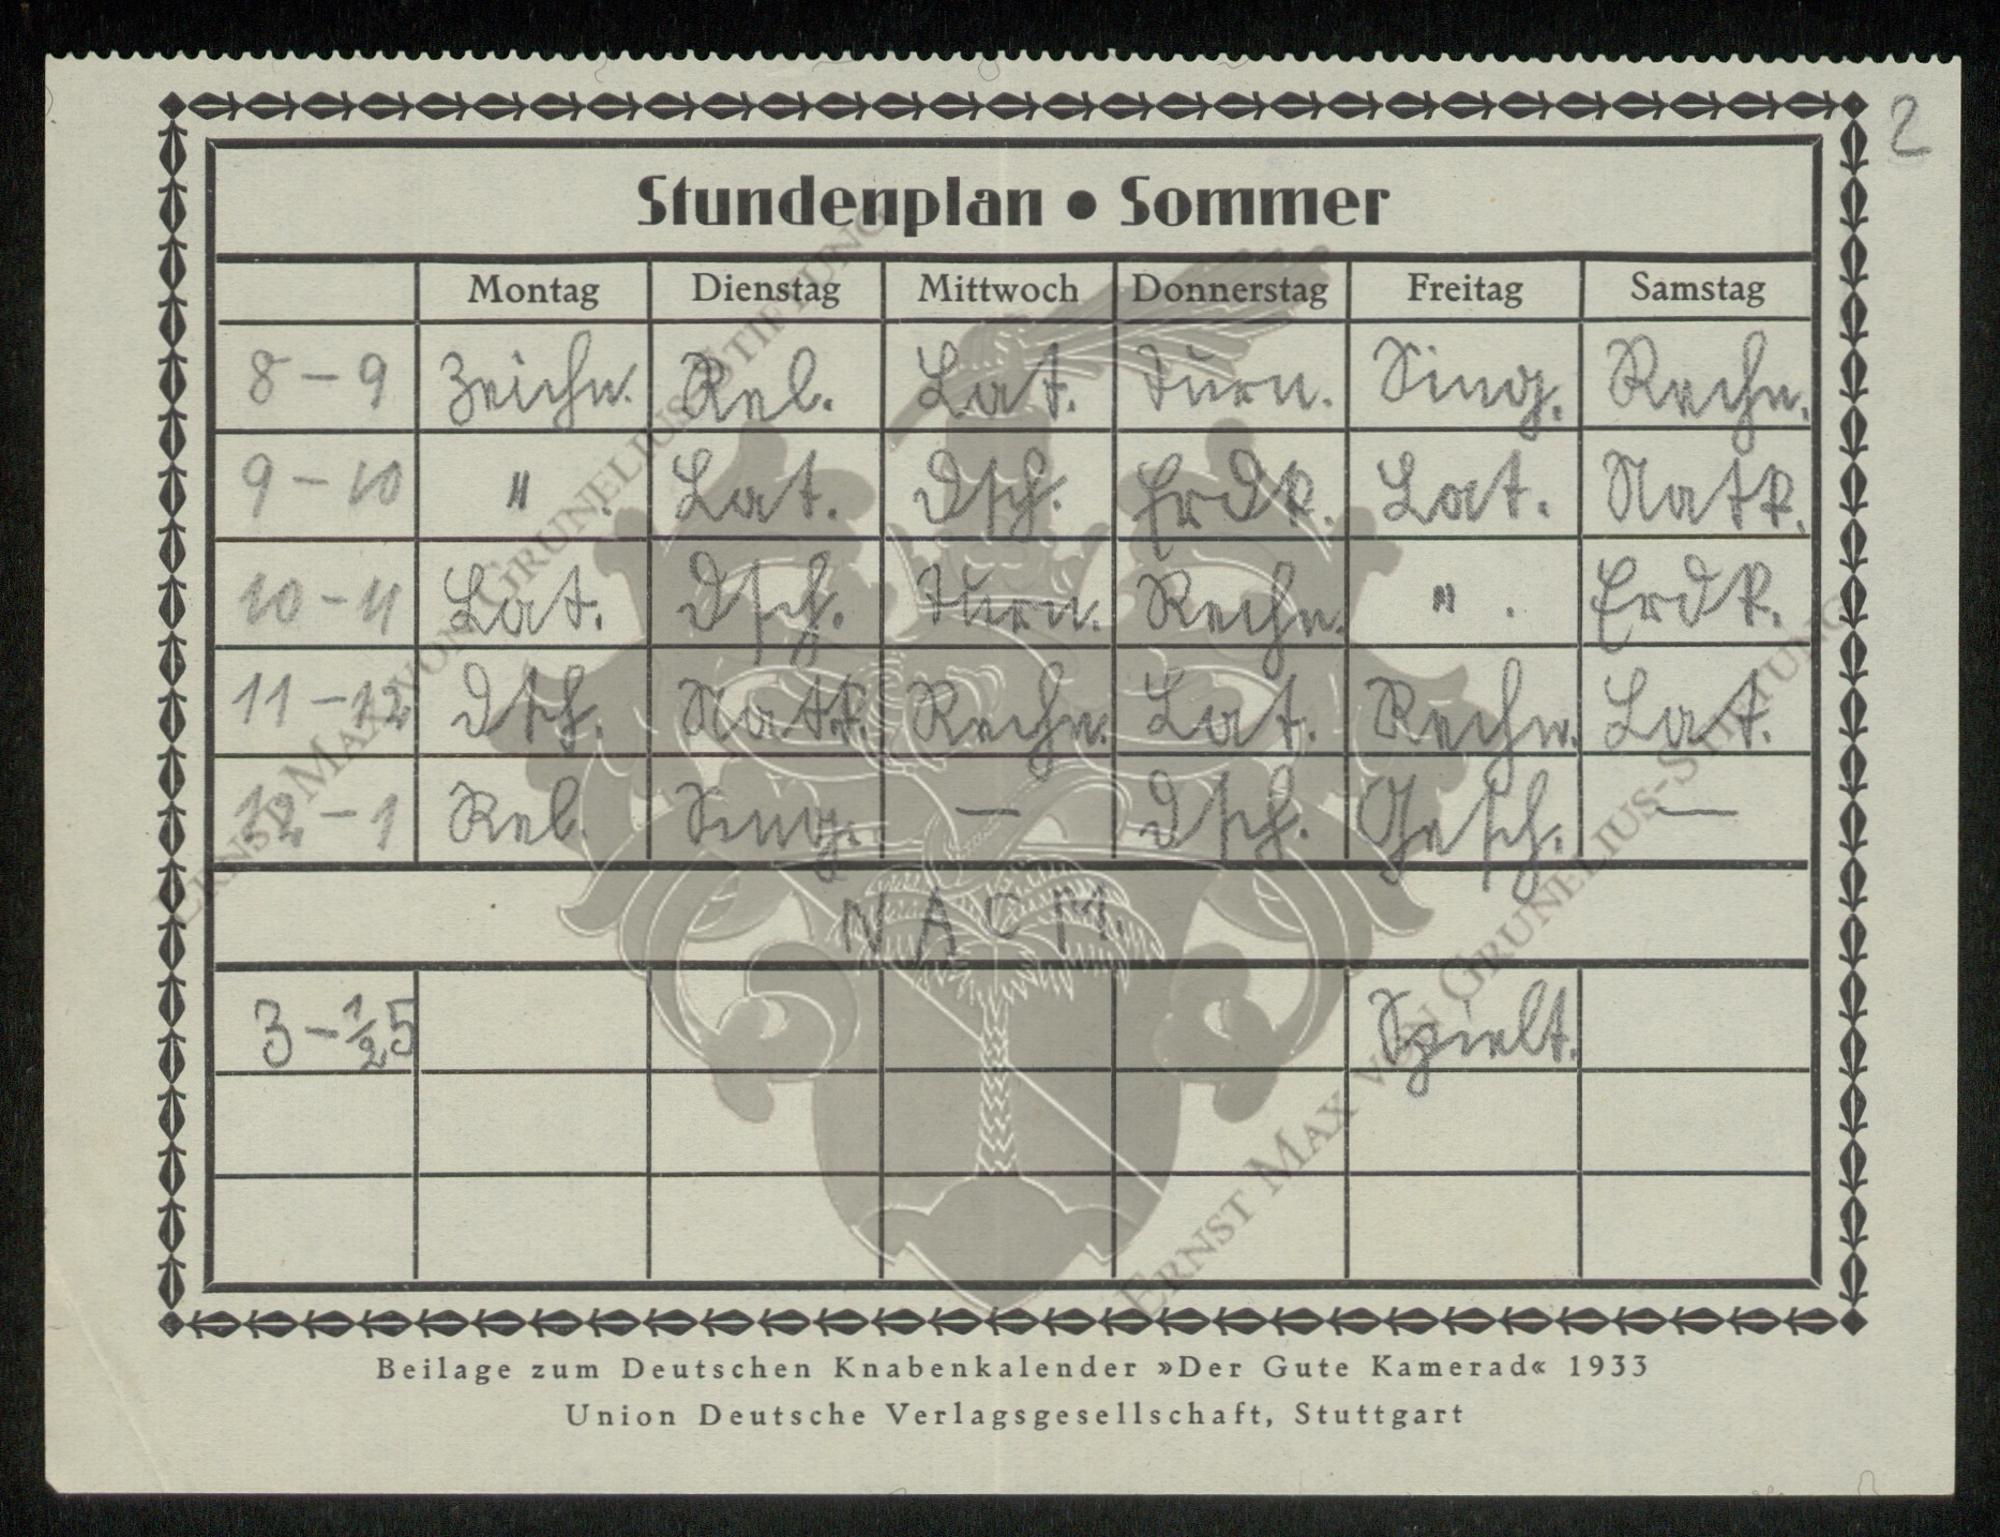 2
Stundenplan • Sommer
Montag Dienstag Mittwoch Donnerstag Freitag Samstag
8 – 9 Zeichn. Rel. Lat. Turn. Sing. Rechn.
9 – 10 " . Lat. Dtsch. Erdk. Lat. Natk.
10 – 11 Lat. Dtsch. Turn. Rechn. " . Erdk.
11 – 12 Dtsch. Natk. Rechn. Lat. Rechn. Lat.
12 – 1 Rel. Sing. — Dtsch. Gesch. —
NACM.
3 – ½5 Spielt.
Beilage zum Deutschen Knabenkalender »Der Gute Kamerad« 1933
Union Deutsche Verlagsgesellschaft, Stuttgart
Ernst Max von Grunelius-Stiftung
Ernst Max von Grunelius-Stiftung